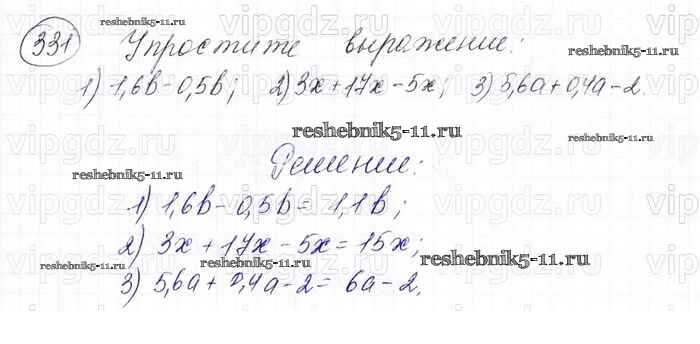 331 Упростите выражение:
reshebnik5-11.ru
reshebnik5-11.ru
1) 1,6b-0,5b; 2) 3x+17x-5x; 3) 5,6a+0,4a-2.
reshebnik5-11.ru
reshebnik5-11.ru
reshebnik5-11.ru
Решение:
reshebnik5-11.ru
reshebnik5-11.ru
1) 1,6b-0,5b=1,1b;
2) 3x+17x-5x=15x;
reshebnik5-11.ru
reshebnik5-11.ru
3) 5,6a+0,4a-2=6a-2.